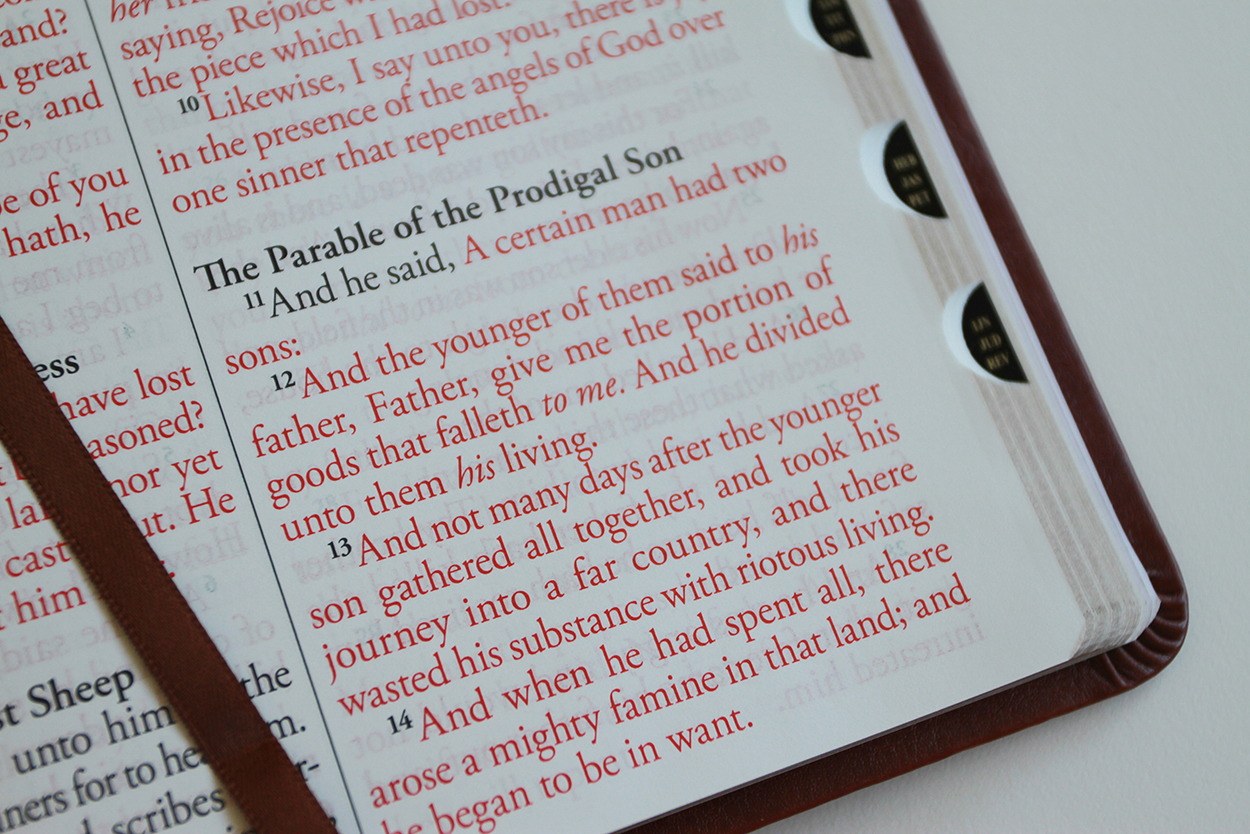 and?
great
ge, and
of you
hath, he
ess
have lost
asoned?
nor yet
ut. He
cast
him
st Sheep
the
unto him
m.
for to hea
scribes
her
saying, Rejoice
the piece which I had lost.
10 Likewise, I say unto you, there is
in the presence of the angels of God over
one sinner that repenteth.
The Parable of the Prodigal Son
11 And he said, A certain man had two
sons:
12 And the younger of them said to his
father, Father, give me the portion of
goods that falleth to me. And he divided
unto them his living.
13 And not many days after the younger
son gathered all together, and took his
journey into a far country, and there
wasted his substance with riotous living.
14 And when he had spent all, there
arose a mighty famine in that land; and
he began to be in want.
HEB
JAS
PET
JUD
REV